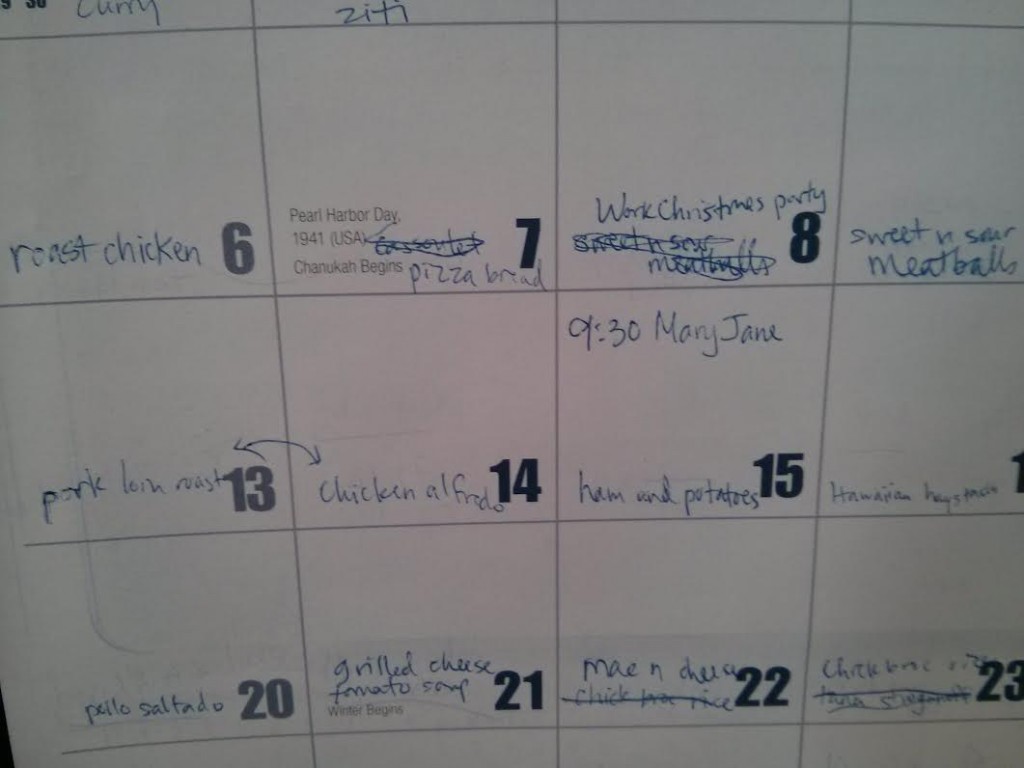 30 Curry
ziti
roast chicken 6
Pearl Harbor Day,
1941 (USA)
Chanukah Begins pizza bread
7
Work Christmas party
sweet n sour
meatballs
8
sweet n sour
meatballs
pork loin roast 13
chicken alfredo 14
9:30 Mary Jane
ham and potatoes 15
Hawaiian haystacks
pollo saltado 20
grilled cheese
tomato soup
Winter Begins
21
mac n cheese
chick broc rice
22
chick broc rice
tuna
23